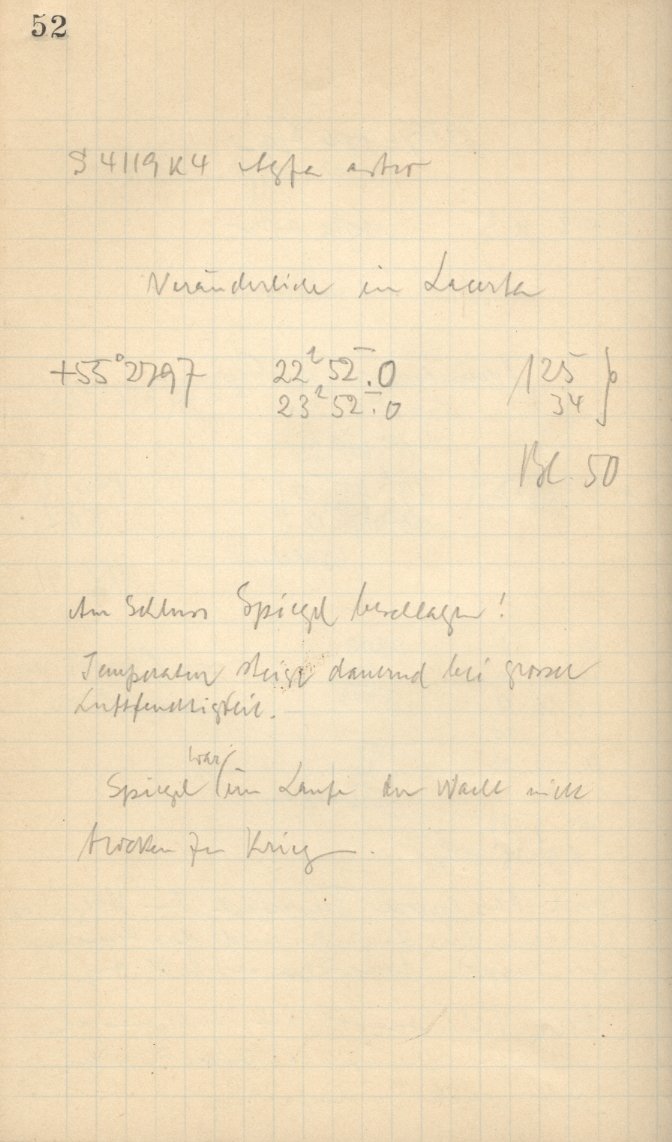 52
S 4119 K4 Agfa astro
Veränderliche in Lacerta
+55° 2797 22ʰ52ᵐ.0 125 }
23ʰ52ᵐ.0 34
Bl. 50
Am Schluss Spiegel beschlagen!
Temperatur steigt dauernd bei grosser
Luftfeuchtigkeit.
war
Spiegel im Laufe der Nacht nicht
trocken zu Krieg.